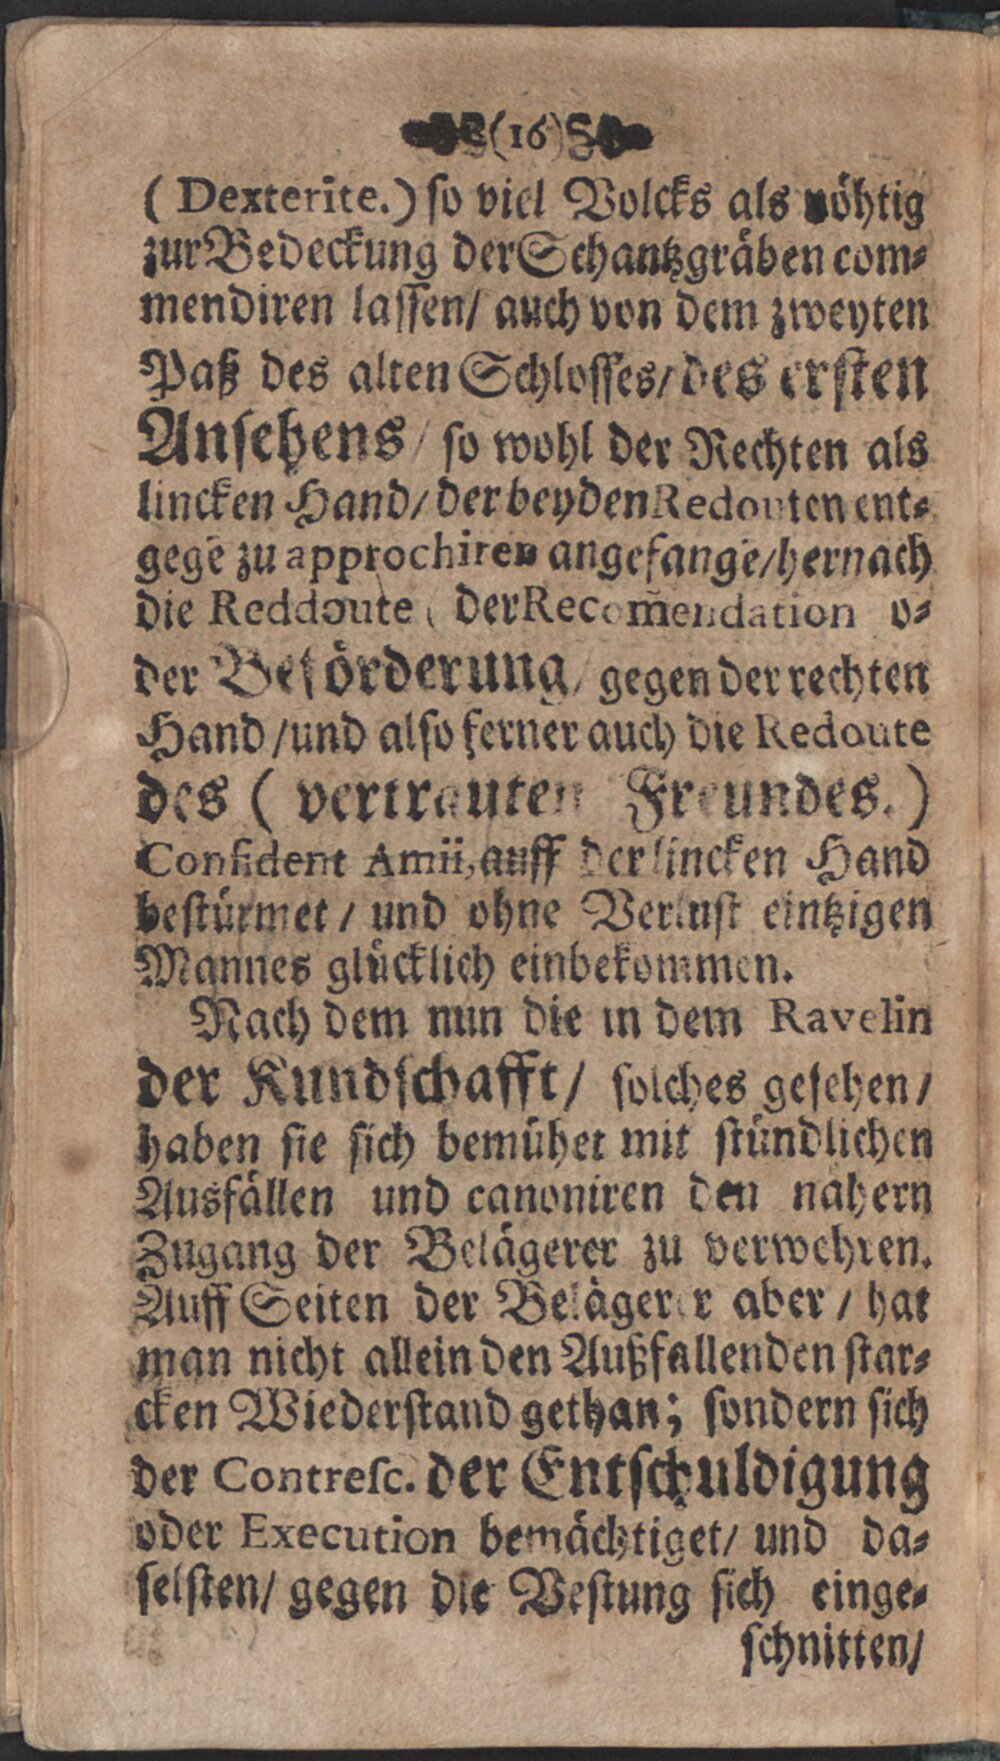 (16)
(Dexterite.) so viel Volcks als nöhtig
zur Bedeckung der Schantzgräben com⸗
mendiren lassen/ auch von dem zweyten
Paß des alten Schlosses/ des ersten
Ansehens/ so wohl der Rechten als
lincken Hand/ der beyden Redouten ent⸗
gegē zu approchiren angefangē/ hernach
die Reddoute ( der Recom̃endation o⸗
der Beförderung/ gegen der rechten
Hand/ und also ferner auch die Redoute
des (vertrauten Freundes.)
Confident Amii, auff der lincken Hand
bestürmet/ und ohne Verlust eintzigen
Mannes glücklich einbekommen.
Nach dem nun die in dem Ravelin
der Kundschafft/ solches gesehen/
haben sie sich bemühet mit stündlichen
Ausfällen und canoniren den nähern
Zugang der Belägerer zu verwehren.
Auff Seiten der Belägerer aber/ hat
man nicht allein den Außfallenden star⸗
cken Wiederstand gethan; sondern sich
der Contresc. der Entschuldigung
oder Execution bemächtiget/ und da⸗
selsten/ gegen die Vestung sich einge⸗
schnitten/